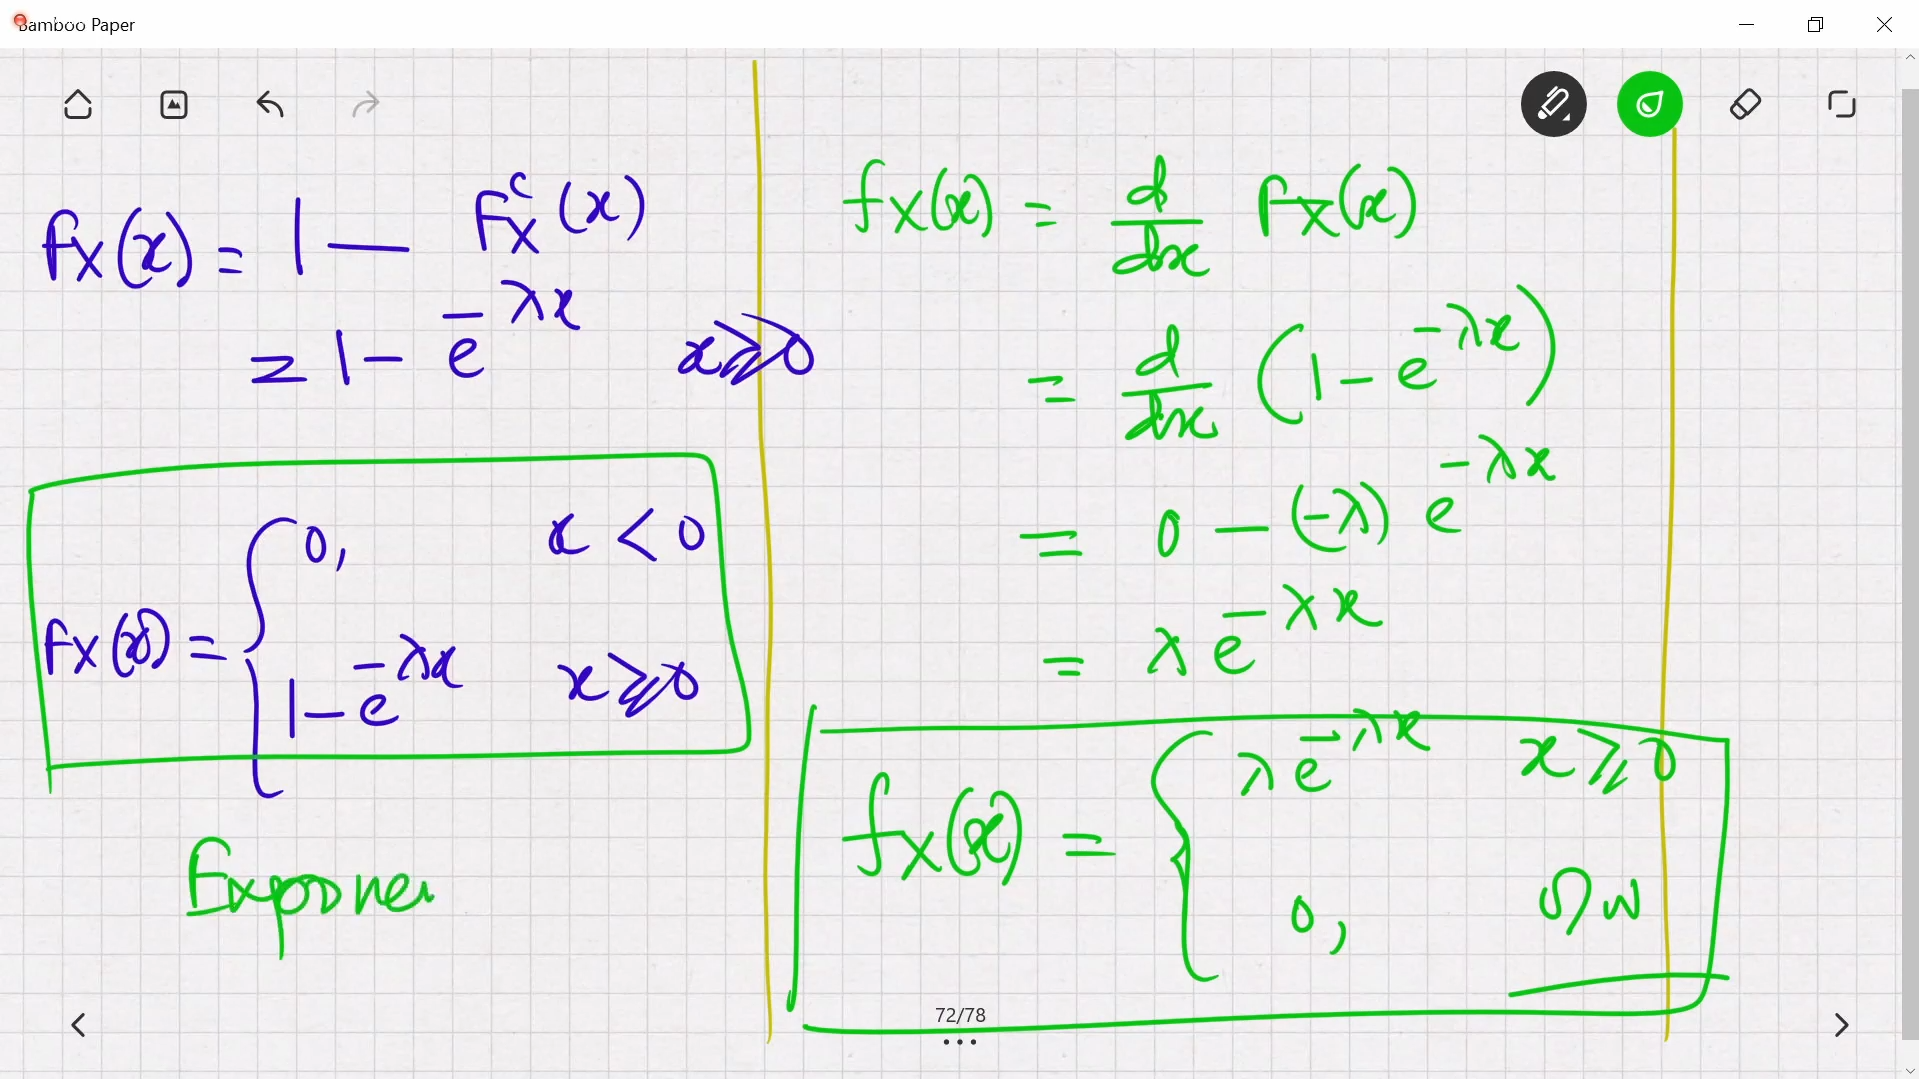 Bamboo Paper
F_X(x) = 1 − F_X^c(x)
= 1 − e^{−λx}  x ⩾ 0
F_X(x) = { 0,  x < 0
1 − e^{−λx}  x ⩾ 0
Expone
f_X(x) = d/dx F_X(x)
= d/dx (1 − e^{−λx})
= 0 − (−λ) e^{−λx}
= λ e^{−λx}
f_X(x) = { λ e^{−λx}  x ⩾ 0
0,  OW
72/78